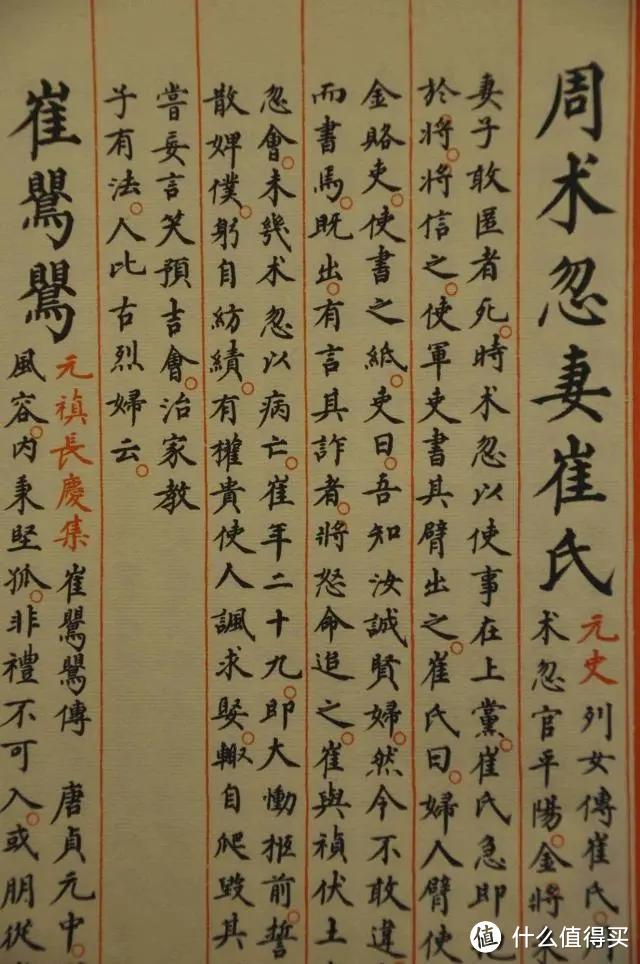 周术忽妻崔氏
元史列女傳崔氏。周
术忽官平陽。金將來
妻子敢匿者死。時术忽以使事在上黨。崔氏急即
於將。將信之。使軍吏書其臂出之。崔氏曰。婦人臂使
金賂吏。使書之紙。吏曰。吾知汝誠賢婦。然今不敢違
而書焉。既出。有言其詐者。將怒命追之。崔與禎伏土
忽會。未幾术忽以病亡。崔年二十九。即大慟柩前。誓
散婢僕。躬自紡績。有權貴使人諷求娶。輙自爬毀其
嘗妄言笑預吉會。治家教
子有法。人比古烈婦云。
崔鸎鸎
元禛長慶集 崔鸎鸎傳 唐貞元中。
風容。內秉堅孤。非禮不可入。或朋從
值 什么值得买